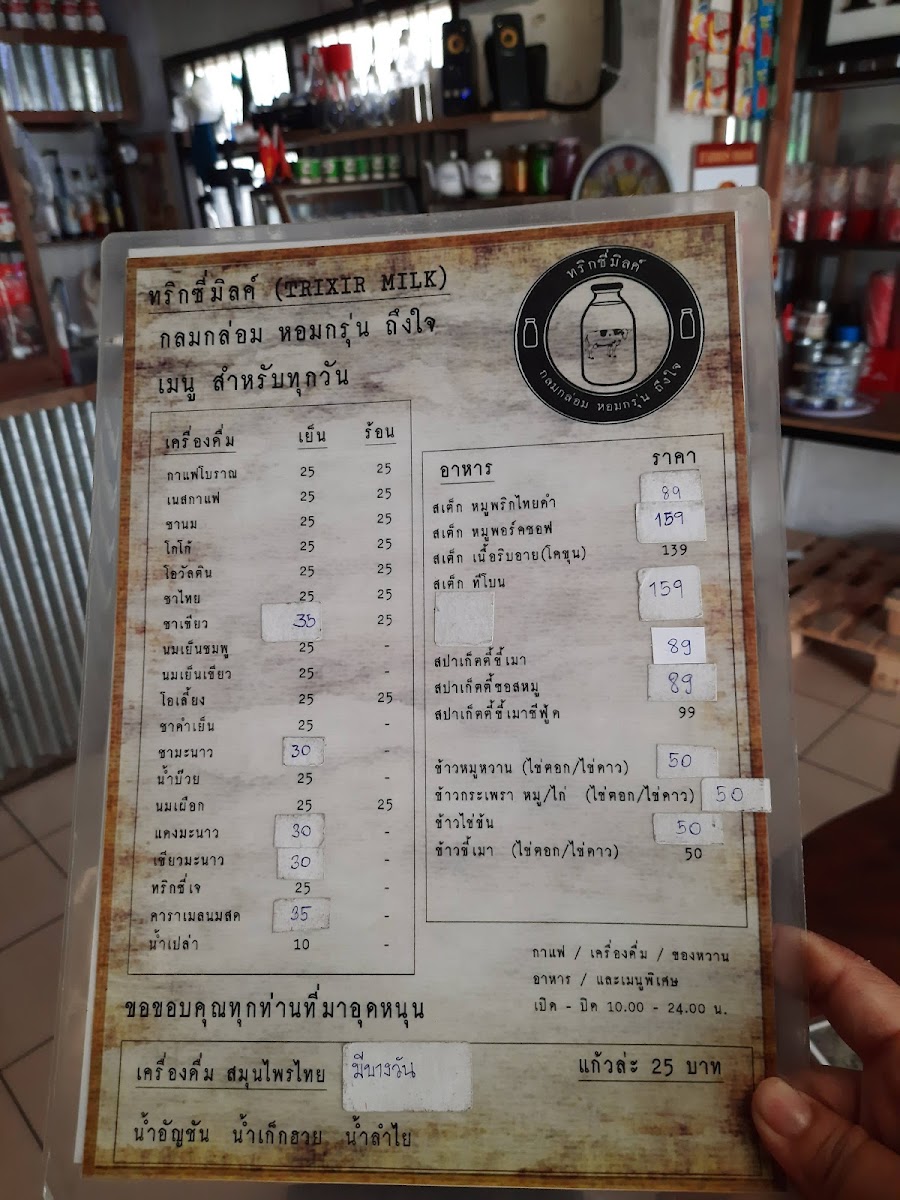 ทริกซี่มิลค์ (TRIXIR MILK)
กลมกล่อม หอมกรุ่น ถึงใจ
เมนู สำหรับทุกวัน
ทริกซี่มิลค์
กลมกล่อม หอมกรุ่น ถึงใจ
เครื่องดื่ม เย็น ร้อน
กาแฟโบราณ 25 25
เนสกาแฟ 25 25
ชานม 25 25
โกโก้ 25 25
โอวัลติน 25 25
ชาไทย 25 25
ชาเขียว 35 25
นมเย็นชมพู 25 -
นมเย็นเขียว 25 -
โอเลี้ยง 25 25
ชาดำเย็น 25 -
ชามะนาว 30 -
น้ำบ๊วย 25 -
นมเผือก 25 25
แดงมะนาว 30 -
เขียวมะนาว 30 -
ทริกซี่เจ 25 -
คาราเมลนมสด 35 -
น้ำเปล่า 10 -
อาหาร ราคา
สเต็ก หมูพริกไทยดำ 89
สเต็ก หมูพอร์คชอฟ 159
สเต็ก เนื้อริบอาย(โคขุน) 139
สเต็ก ทีโบน 159
สปาเก็ตตี้ขี้เมา 89
สปาเก็ตตี้ซอสหมู 89
สปาเก็ตตี้ขี้เมาซีฟู้ด 99
ข้าวหมูหวาน (ไข่ดอก/ไข่ดาว) 50
ข้าวกระเพรา หมู/ไก่ (ไข่ดอก/ไข่ดาว) 50
ข้าวไข่ข้น 50
ข้าวขี้เมา (ไข่ดอก/ไข่ดาว) 50
กาแฟ / เครื่องดื่ม / ของหวาน
อาหาร / และเมนูพิเศษ
เปิด - ปิด 10.00 - 24.00 น.
ขอขอบคุณทุกท่านที่มาอุดหนุน
เครื่องดื่ม สมุนไพรไทย มีบางวัน แก้วล่ะ 25 บาท
น้ำอัญชัน น้ำเก็กฮวย น้ำลำไย